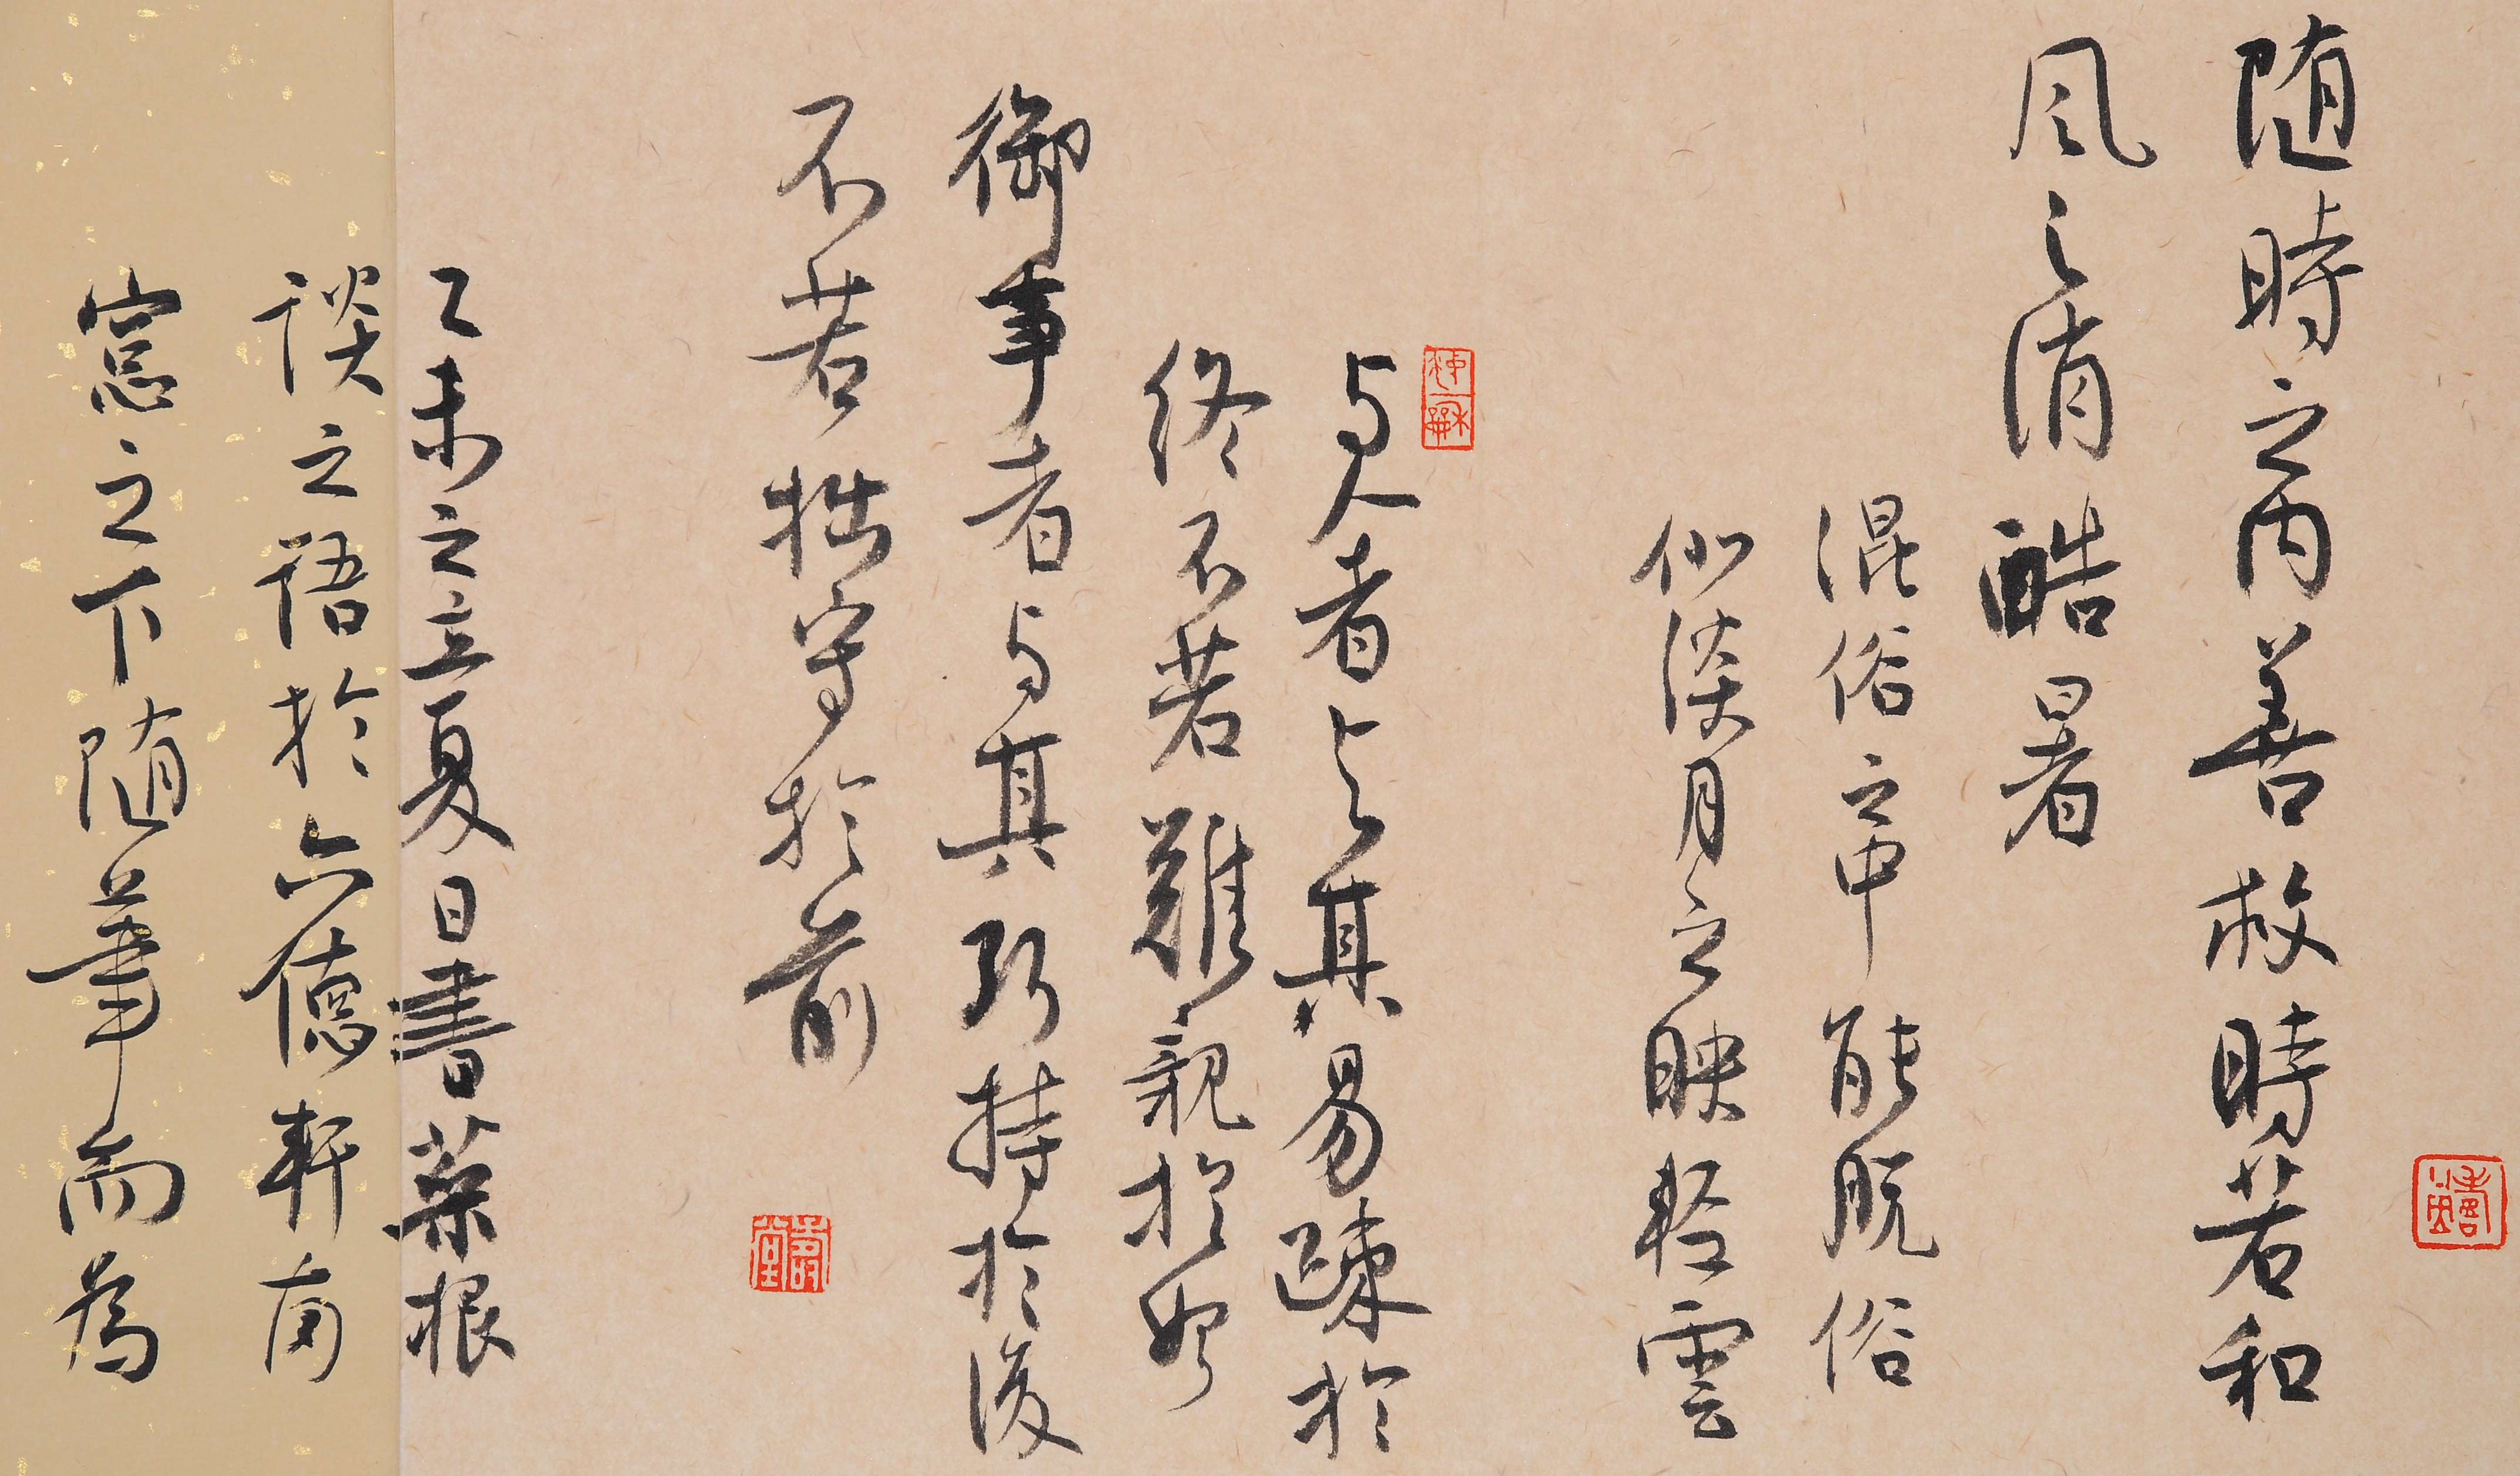 随時之内善救時若和
風之消酷暑
混俗之中能脱俗
似淡月之映轻雲
与人者与其易疎於
终不若難親於始
御事者与其巧持於後
不若拙守於前
乙未之立夏日書菜根
談之语於六德軒南
窻之下随筆而為